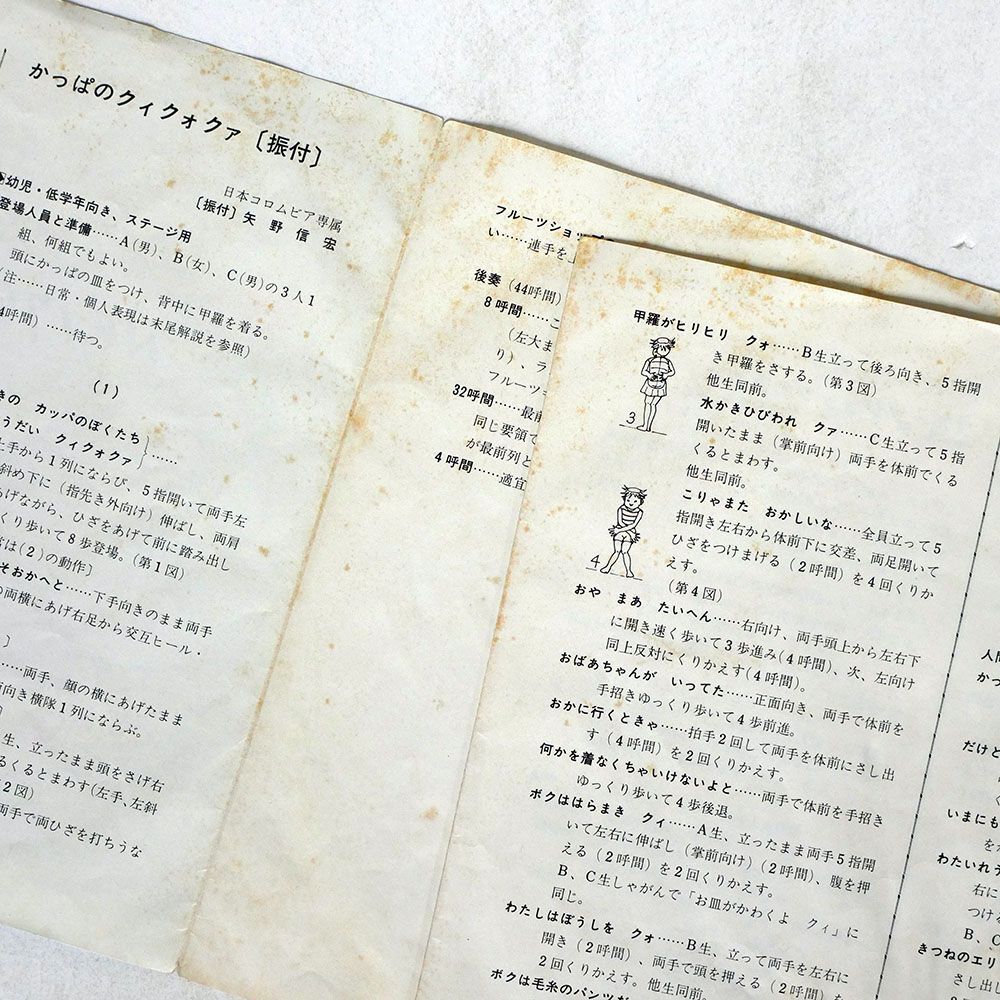 かっぱのクィクォクァ〔振付〕
日本コロムビア専属
〔振付〕矢野信宏
幼児・低学年向き、ステージ用
登場人員と準備……A(男)、B(女)、C(男)の3人1
組、何組でもよい。
頭にかっぱの皿をつけ、背中に甲羅を着る。
(注……日常・個人表現は末尾解説を参照)
4呼間)……待つ。
(1)
きの カッパのぼくたち
うだい クィクォクァ}……
上手から1列にならび、5指開いて両手左
斜め下に(指先き外向け)伸ばし、両肩
あげながら、ひざをあげて前に踏み出し
くり歩いて8歩登場。(第1図)
は(2)の動作〕
そおかへと……下手向きのまま両手
の両横にあげ右足から交互ヒール・
……両手、顔の横にあげたまま
向き横隊1列にならぶ。
生、立ったまま頭をさげ右
るくるとまわす(左手、左斜
2図)
両手で両ひざを打ちうな
フルーツショ
い……連手を
後奏(44呼間)
8呼間……こ
(左大ま
り)、ラ
フルーツショ
32呼間……最前
同じ要領で
が最前列と
4呼間……適宜
甲羅がヒリヒリ クォ……B生立って後ろ向き、5指開
き甲羅をさする。(第3図)
他生同前。
3
水かきひびわれ クァ……C生立って5指
開いたまま(掌前向け)両手を体前でくる
くるとまわす。
他生同前。
こりゃまた おかしいな……全員立って5
指開き左右から体前下に交差、両足開いて
ひざをつけまげる(2呼間)を4回くりか
えす。
(第4図)
4
おや まあ たいへん……右向け、両手頭上から左右下
に開き速く歩いて3歩進み(4呼間)、次、左向け
同上反対にくりかえす(4呼間)。
おばあちゃんが いってた……正面向き、両手で体前を
手招きゆっくり歩いて4歩前進。
おかに行くときゃ……拍手2回して両手を体前にさし出
す(4呼間)を2回くりかえす。
何かを着なくちゃいけないよと……両手で体前を手招き
ゆっくり歩いて4歩後退。
ボクははらまき クィ……A生、立ったまま両手5指開
いて左右に伸ばし(掌前向け)(2呼間)、腹を押
える(2呼間)を2回くりかえす。
B、C生しゃがんで「お皿がかわくよ クィ」に
同じ。
わたしはぼうしを クォ……B生、立って両手を左右に
開き(2呼間)、両手で頭を押える(2呼間)を
2回くりかえす。他生同前。
ボクは毛糸のパンツが
人間
かっ
だけと
いまにも
をか
わたいれう
右に
つける
B、C
きつねのエリ
さし出し